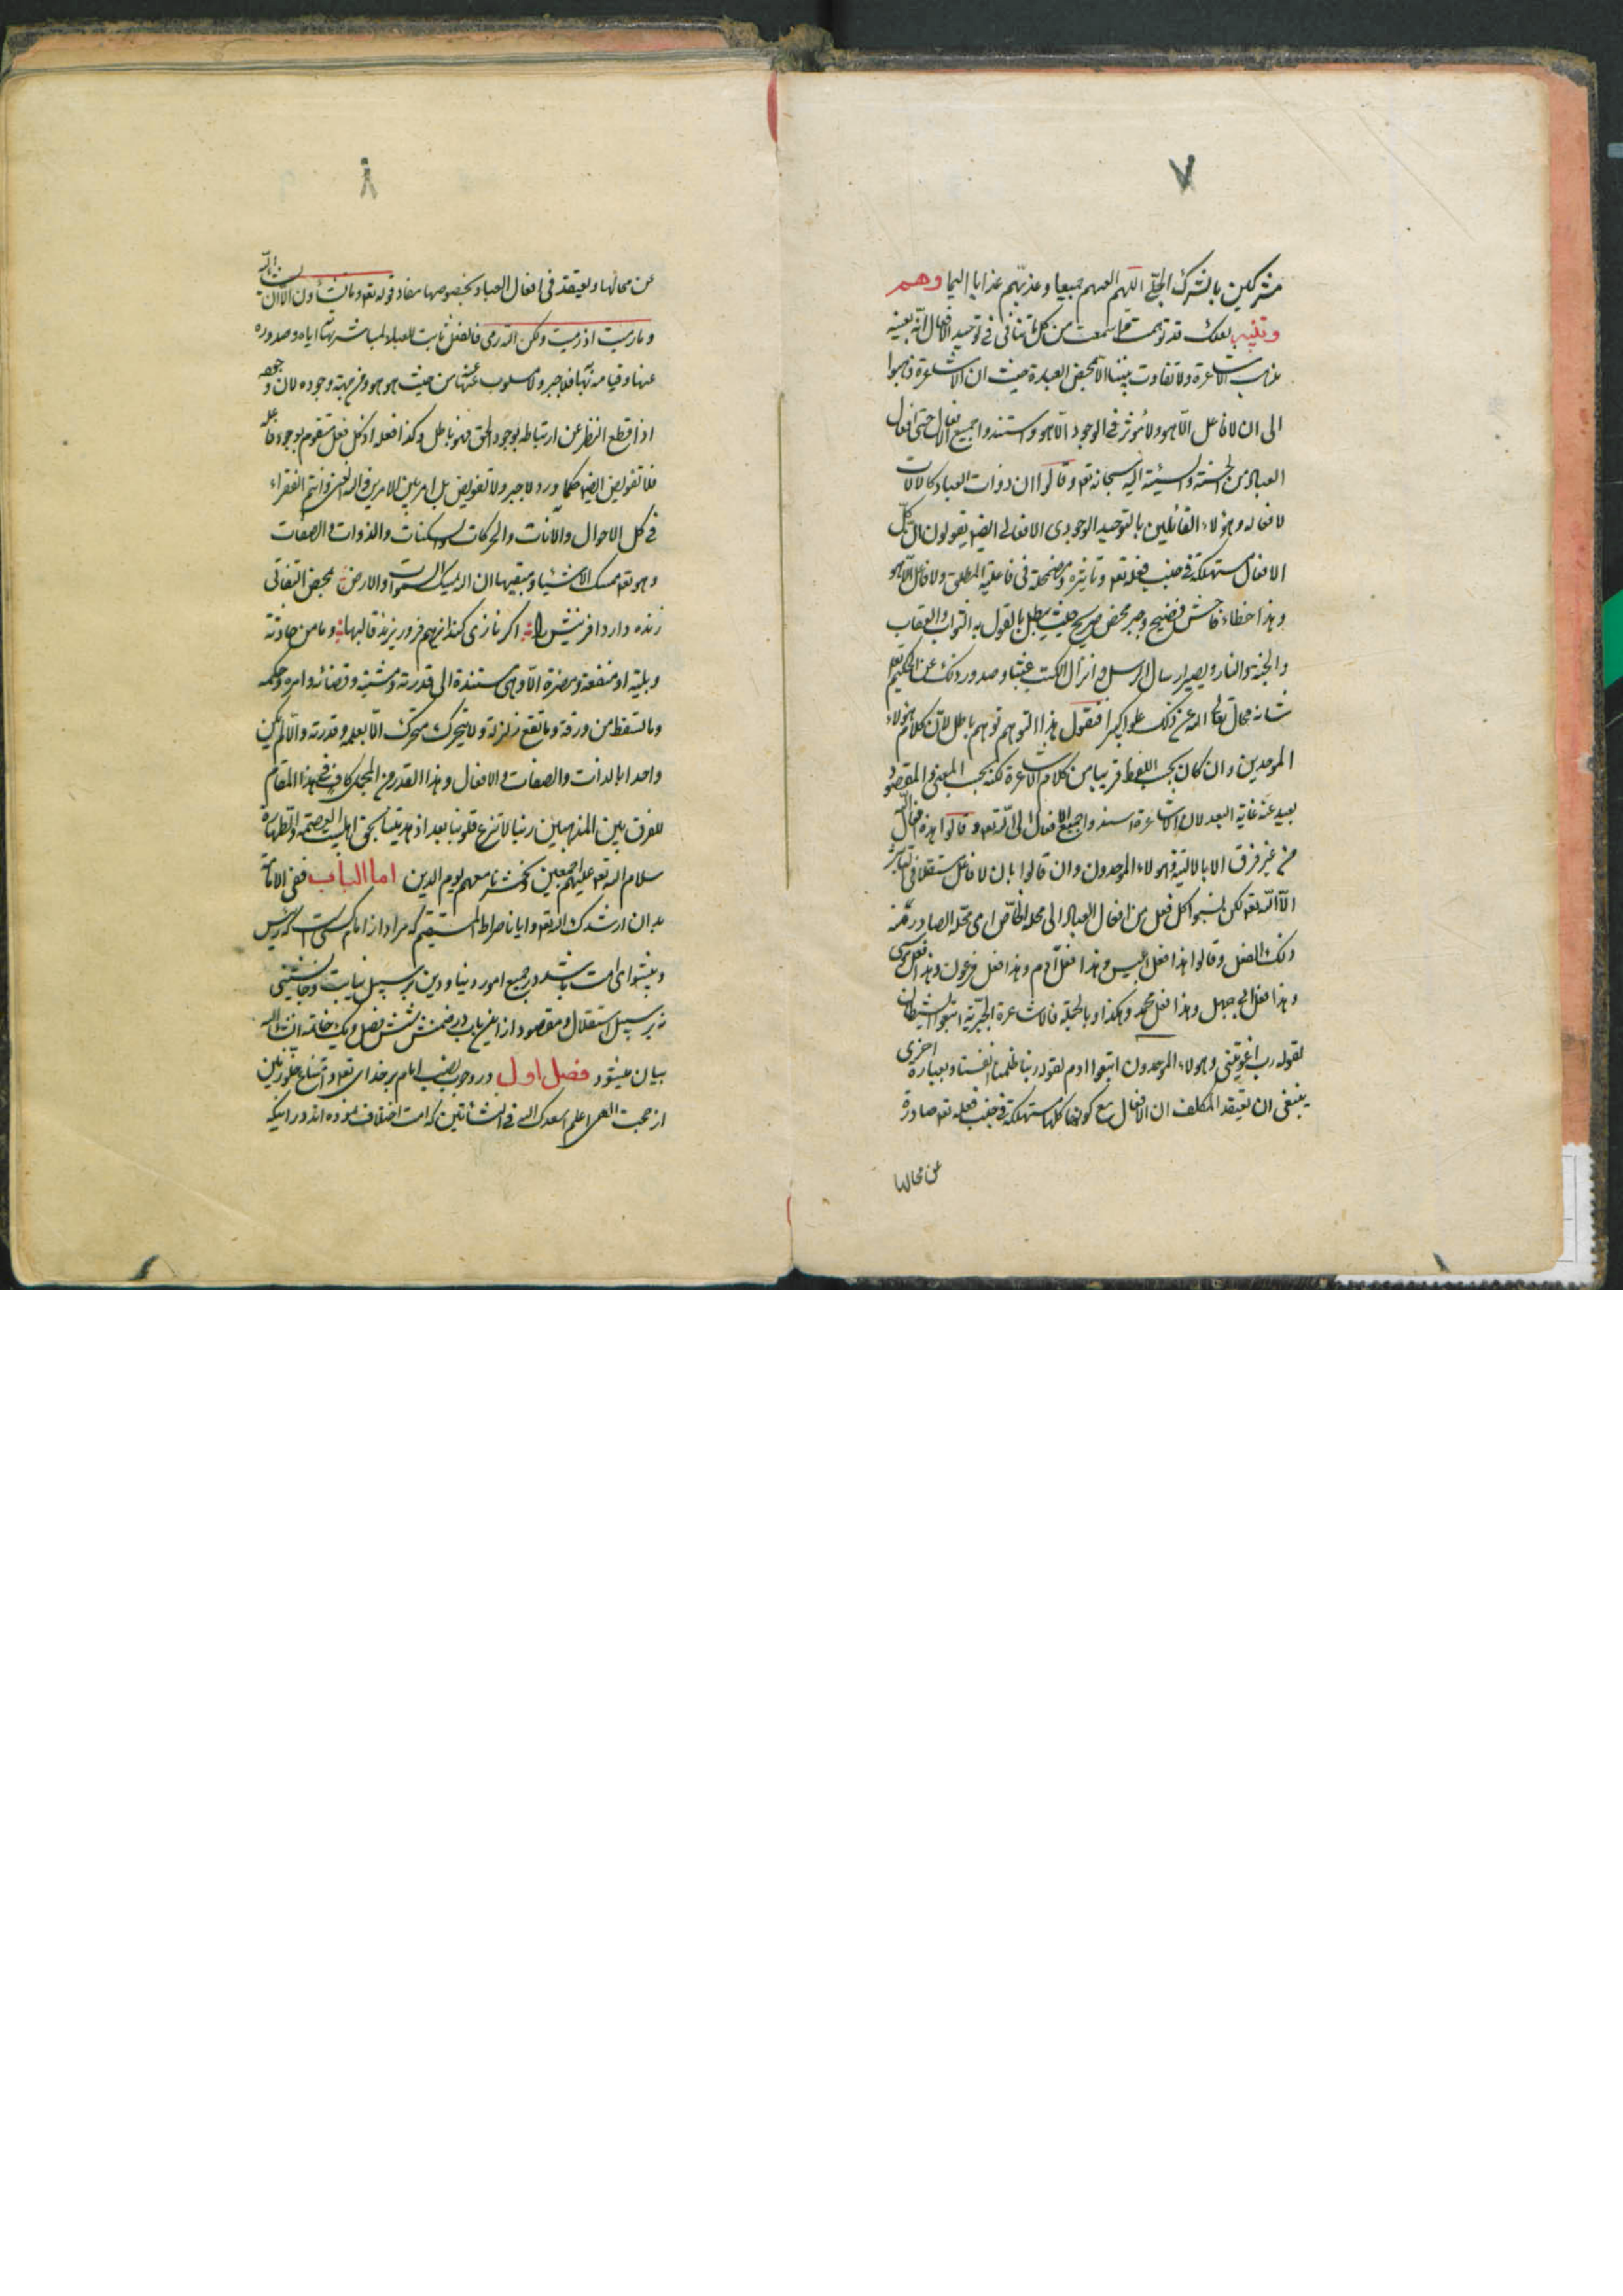 ٧
مشركين بالشرك الجلّى اللهم العنهم جميعا وعذبهم عذابا اليما وهم
وتنبيه لعلك قد توهمت مما سمعت من كلماتنا فى توحيد الافعال انه بعينه
مذهب الاشاعرة ولا تفاوت بيننا الا بمحض العبارة حيث ان الاشاعرة ذهبوا
الى ان لا فاعل الا هو ولا مؤثر فى الوجود الا هو واستندوا جميع الافعال حتى افعال
العباد من الحسنة والسيئة اليه سبحانه تعه وقالوا ان ذوات العباد كالالات
لافعاله وهؤلاء القائلين بالتوحيد الوجودى الافعالى ايضه يقولون ان كل
الافعال مستهلكة فى جنب فعله تعه وتاثيره ومضمحلة فى فاعليته المطلق ولا فاعل الا هو
وهذا خطاء فاحش فضيح وجبر محض صريح حيث يبطل بالقول به الثواب والعقاب
والجنة والنار ويصير ارسال الرسل وانزال الكتب عبثا وصدور ذلك عن الحكيم تعه
شانه محال تعالى الله عن ذلك علوا كبيرا فنقول هذا التوهم توهم باطل لان كلام هؤلاء
الموحدين وان كان بحسب اللفظ قريبا من كلام الاشاعرة لكنه بحسب المعنى والمقصود
بعيد عنه غاية البعد لان الاشاعرة اسندوا جميع الافعال الى الله تعه وقالوا هذه افعال الله
من غير فرق الا بالالية وهؤلاء الموحدون وان قالوا بان لا فاعل مستقلا فى تاثيره
الا الله تعه لكن نسبوا كل فعل من افعال العباد الى محله الخاص اى محله الصادر عنه
ذلك الفعل وقالوا هذا فعل ابليس وهذا فعل آدم وهذا فعل فرعون وهذا فعل موسى
وهذا فعل ابى جهل وهذا فعل محمد وهكذا وبالجملة فالاشاعرة الجبرية اتبعوا الشيطان
لقوله رب اغويتنى وهؤلاء الموحدون اتبعوا ادم لقوله ربنا ظلمنا انفسنا وبعبارة اخرى
ينبغى ان يعتقد المكلف ان الافعال مع كونها كلها مستهلكة فى جنب فعله تعه صادرة
عن محالها
٨
عن محالها ويعتقد فى افعال العباد بخصوصها مفاد قوله تعه وما تشاؤن الا ان يشاء الله
وما رميت اذ رميت ولكن الله رمى فالفعل ثابت للعباد لمباشرتها اياه وصدوره
عنها وقيامه بها فلا جبر ولا مسلوب عنها من حيث هو هو ومن جهة وجوده لان وجوده
اذا قطع النظر عن ارتباطه بوجود الحق فهو باطل وكذا فعله اذ كل فعل متقوم بوجود فاعله
فلا تفويض ايضه كما ورد لا جبر ولا تفويض بل امر بين الامرين والله الغنى وانتم الفقراء
فى كل الاحوال والآنات والحركات والسكنات والذوات والصفات
وهو تعه ممسك الاشياء ومبقيها ان الله يمسك السموات والارض بمحض التفاتى
زنده دارد افرينش را اكر نازى كند از هم فرو ريزند قالبها وما من حادثة
وبلية او منفعة ومضرة الا وهى مستندة الى قدرته ومشيته وقضائه وامره وحكمه
وما تسقط من ورقة وما تقع زلزلة ولا يتحرك متحرك الا بعلمه وقدرته والا لم يكن
واحدا بالذات والصفات والافعال وهذا القدر من المجمل كاف فى هذا المقام
للفرق بين المذهبين ربنا لا تزغ قلوبنا بعد اذ هديتنا بحق اهل بيت العصمة والطهارة
سلام الله تعه عليهم اجمعين واحشرنا معهم يوم الدين اما الباب ففى الامامة
بدان ارشدك الله تعه وايانا صراط المستقيم كه مراد از امام كسى است كه رئيس
وپيشواى امت باشد در جميع امور دنيا ودين بر سبيل نيابت وجانشينى
نه بر سبيل استقلال ومقصود از اين باب در ضمن شش فصل ويك خاتمه انشاء الله
بيان ميشود فصل اول در وجوب نصب امام بر خداى تعه وامتناع خلو زمين
از حجت الهى اعلم اسعدك الله فى النشأتين كه امت اختلاف نموده اند در اينكه